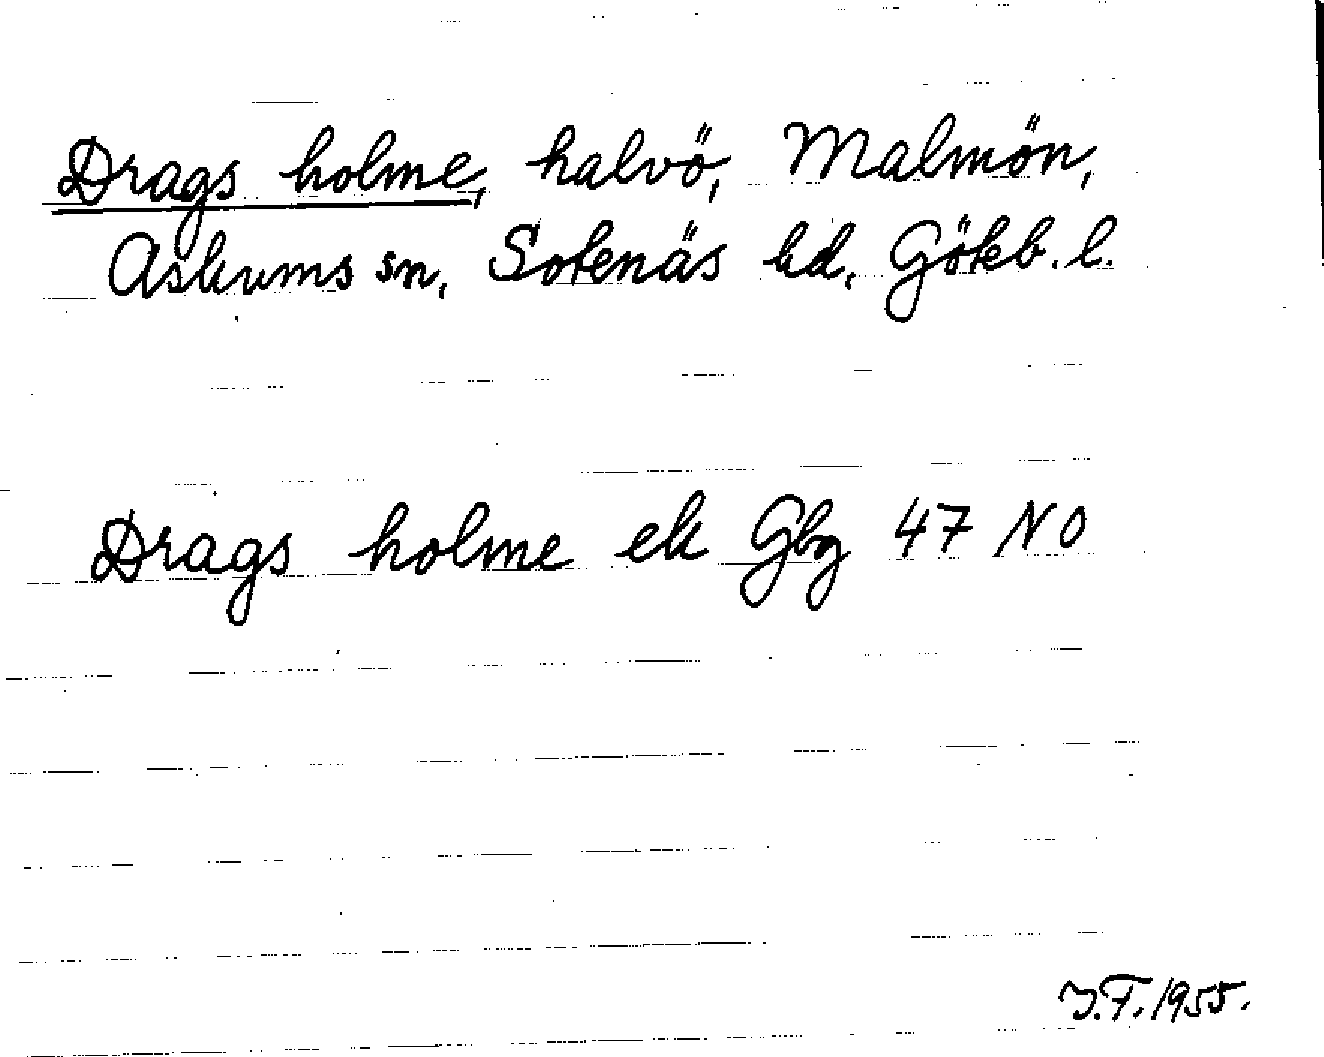 Drags holme, halvö, Malmön,
Askums sn, Sotenäs hd, Göteb. l.
Drags holme ek Gbg 47 NO
J.F. 1955.